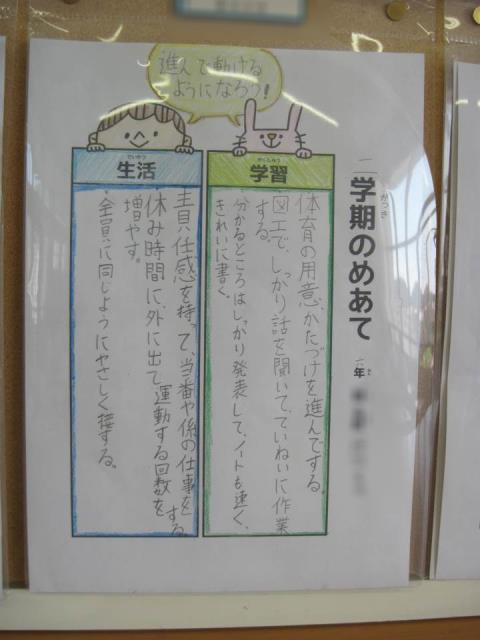 二学期のめあて
がっき
六年
進んで動ける
ようになろう!
がくしゅう
学習
体育の用意、かたづけを進んでする。
図工で、しっかり話を聞いて、ていねいに作業
する。
分かるところはしっかり発表して、ノートも速く、
きれいに書く。
せいかつ
生活
責任感を持って、当番や係の仕事を
する
休み時間に、外に出て運動する回数を
増やす。
全員に同じようにやさしく接する。